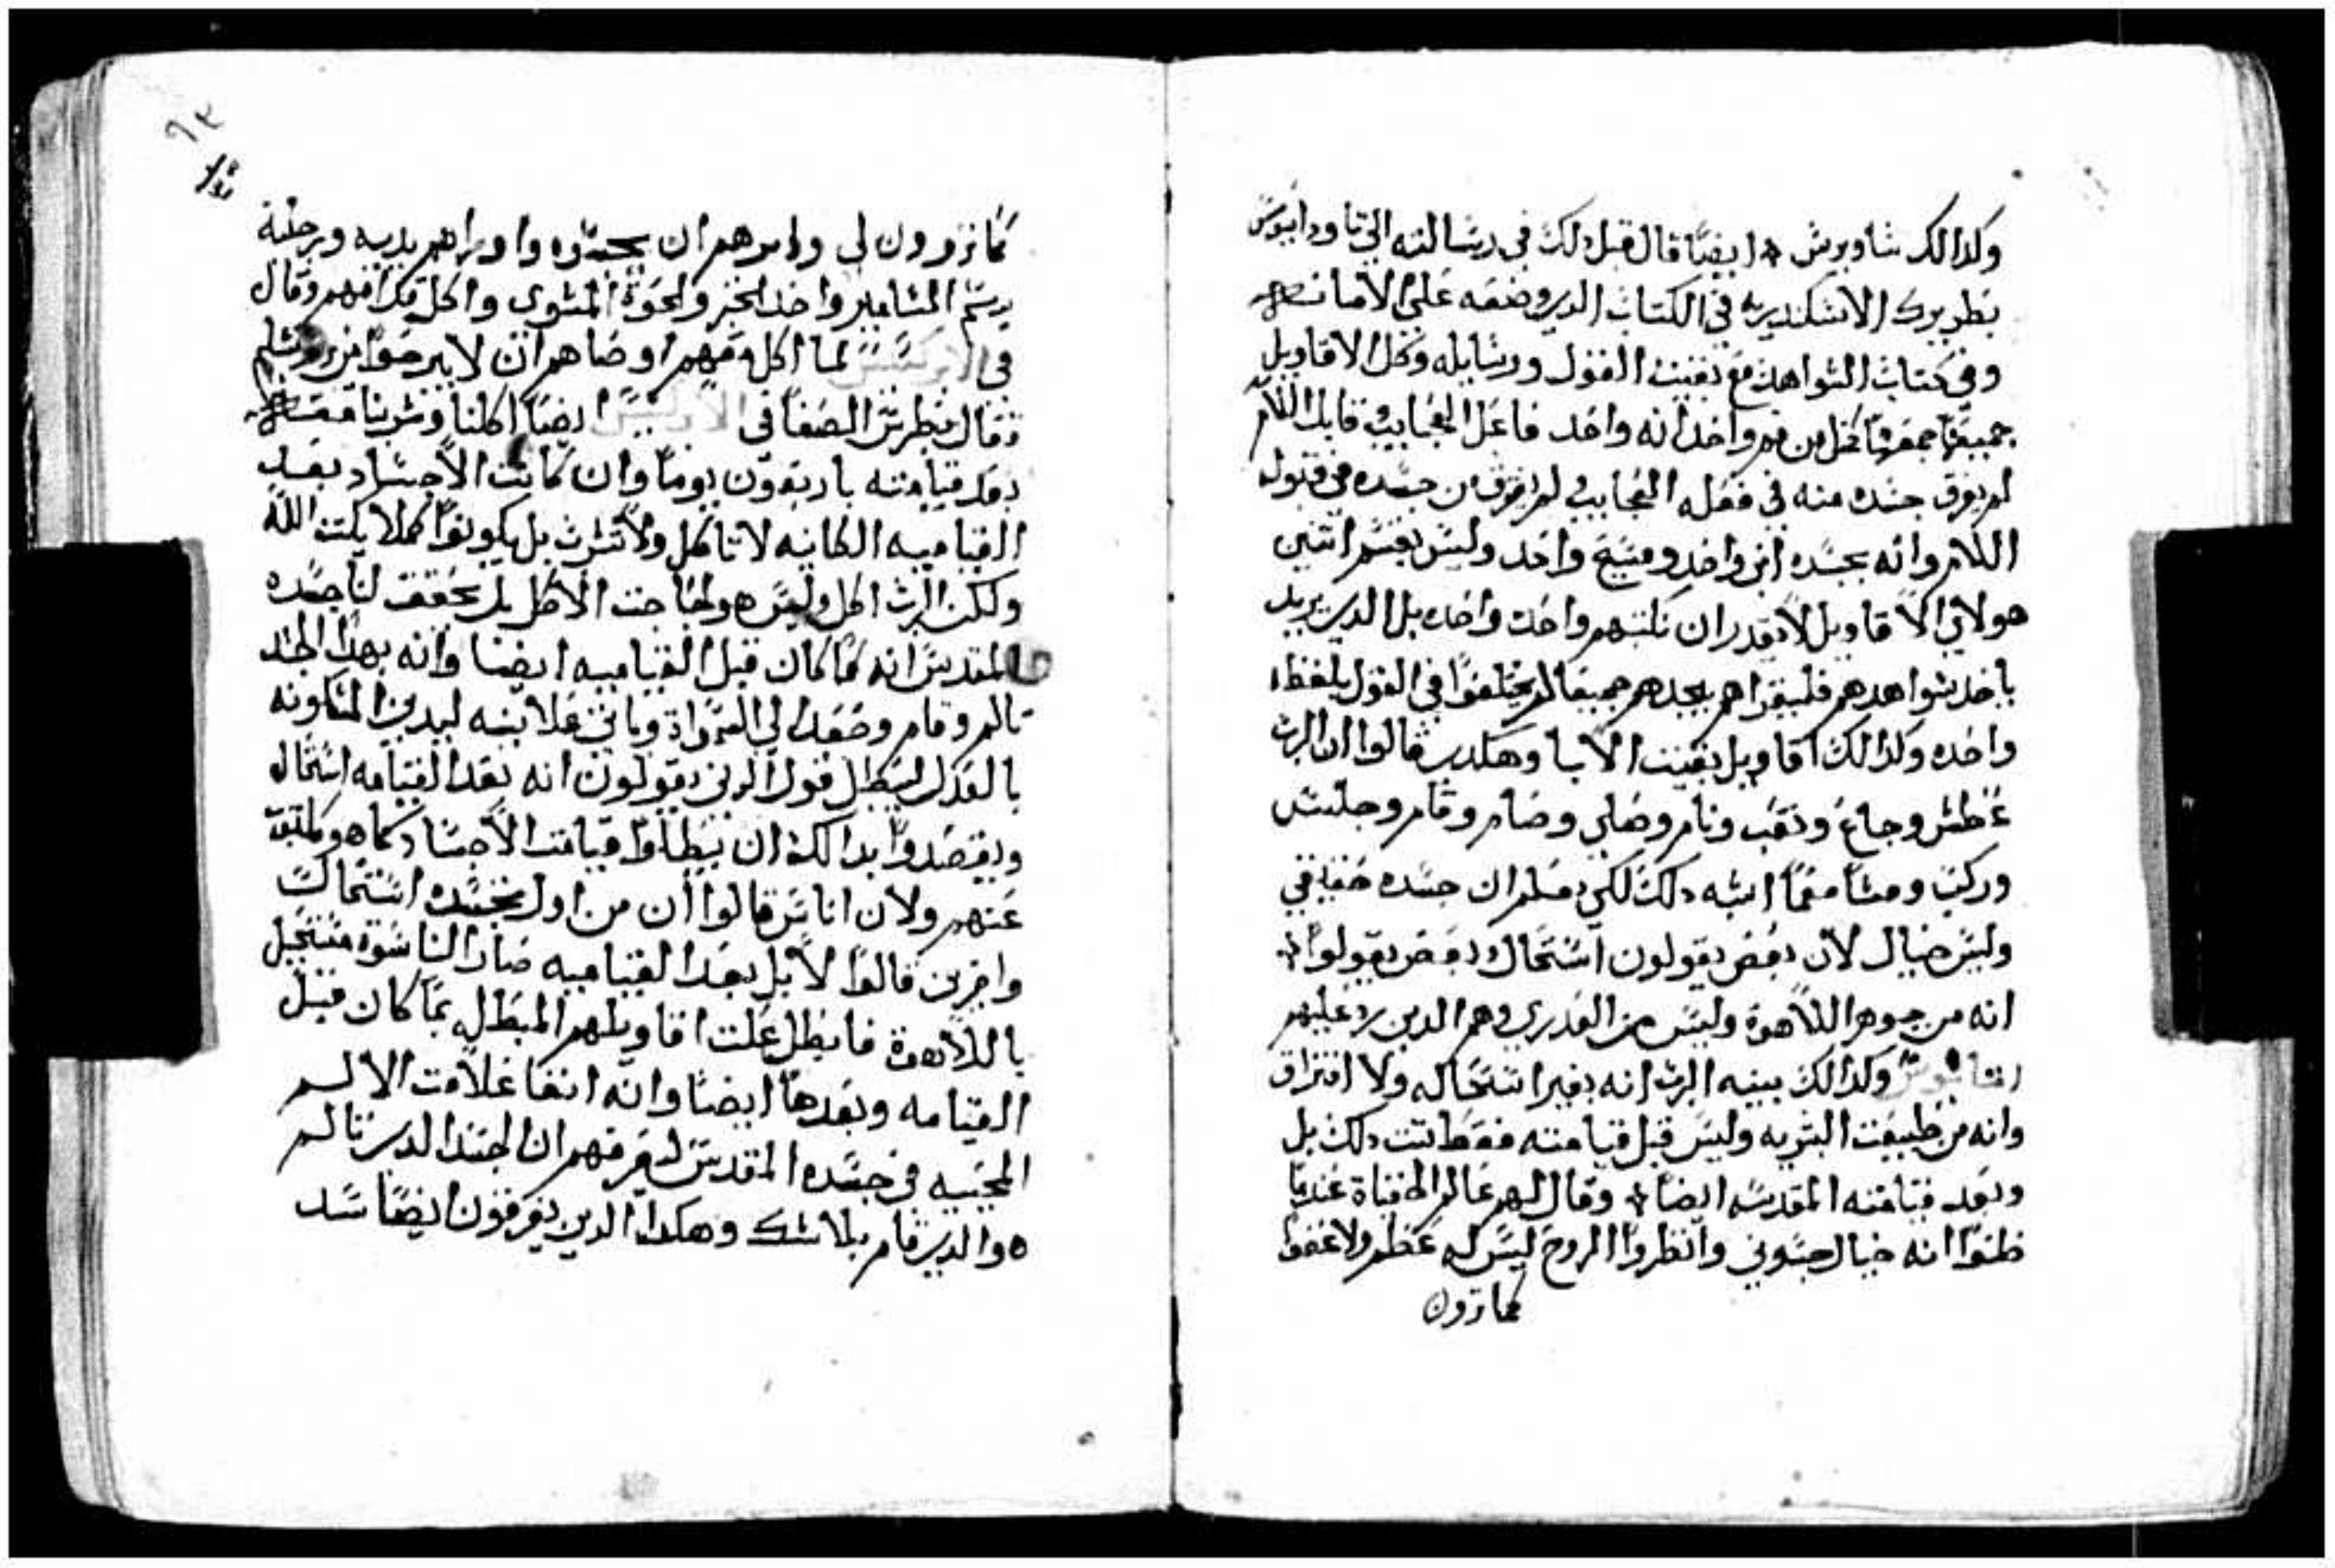 وكدالك شاويرش * ايضا قال قبل دلك في رسالته الي تاوداسيوس
بطريرك الاسكندرية في الكتاب الدي وضعه على الامانه
وفي كتاب الشواهد مع بقيت القول ورسايله وكل الاقاويل
جميعها جمعها كل من هم واحد انه واحد فاعل العجايب وقابل اللالام
لم يفرق جسده منه في فعله العجايب ولم يفرق من جسده في قبوله
اللالام وانه بجسده ابن واحد ومسيح واحد وليس يقسم اتنين
هولاي الاقاويل لا يقدر ان نكتبهم واحدت واحده بل الدي يريد
ياخد شواهدهم فليقراهم يجدهم جميعا لم يختلفوا في القول بلفظه
واحده وكدالك اقاويل بقيت الابا وهكدي قالوا ان الرب
عطش وجاع وتعب ونام وصلي وصام وقام وجلس
وركب ومشا معما اشبه دلك لكي نعلم ان جسده حقيقي
وليس خيال لان بعض يقولون استحال وبعض يقولوا *
انه من جوهر اللاهوة وليس من العدري وهم الدين رد عليهم
وكدالك بينه الرب انه بغير استحاله ولا افتراق
وانه من طبيعت البشريه وليس قبل قيامته فقط تبت دلك بل
وبعد قيامته المقدسه ايضا * وقال لهم عالم الخفياة عندما
ظنوا انه خيال جسوني وانظروا الروح ليس له عظم ولا عضوا
كما ترون
كما ترون لي وامرهم ان يجسوه واوراهم يديه ورجليه
برسم المسامير واخد الخبز والحوة المشوي واكل قدامهم وقال
في لما اكل معهم اوصاهم ان لا يبرحوا من يروشليم
وقال بطرس الصفا في ايضا اكلنا وشربنا معه
بعد قيامته باربعون يوما وان كانت الاجساد بعد
القياميه الكاينه لا تاكل ولا تشرب بل يكونوا كملايكت الله
ولكن الرب اكل وليس هو لحاجت الاكل بل يحقق لنا جسده
المقدس انه كما كان قبل القياميه ايضا وانه بهدا الجسد
تالم وقام وصعد الي السمواة وياتي علانيه ليدين المسكونه
بالعدل ليبطل قول الدين يقولون انه بعد القيامه استحال
ويقصدوا بدالك ان يبطلوا قيامت الاجساد كما هو مكتوب
عنهم ولان اناس قالوا ان من اول تجسده استحالت
واخرين قالوا لا بل بعد القياميه صار الناسوة مستحيل
باللاهوة فابطل علت اقاويلهم المبطل بما كان قبل
القيامه وبعدها ايضا وانه ابقا علامت الالم
المحييه في جسده المقدس ليعرفهم ان الجسد الدي تالم
هو الدي قام بلا شك وهكدا الدين يعرفون ايضا سد